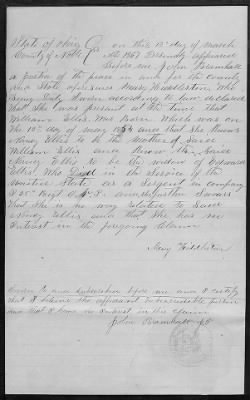 State of Ohio on this 12th day of March
County of Noble SS 1867 Personally appeared
before me John Bramhall
a Justice of the peace in and for the County
and State aforesaid Mary Huddleston who
being Duly Sworn according to law declares
that She was present at the time that
William Ellis was Born which was on
the 10th day of may 1854 and that She knows
Nancy Ellis to be the mother of Said
William Ellis and knows the Said
Nancy Ellis to be the widow of
Ellis who Died in the Service of the
United States as a Sergent in company
25th Regt O. V. I. and further Swears
that She is no way related to Said
Nancy Ellis and that She has no
Interest in the forgoing Claim
Mary
Sworn to and Subscribed before me and I certify
that I believe the affiant to be credible person
and that I have no interest in the claim
John Bramhall JP